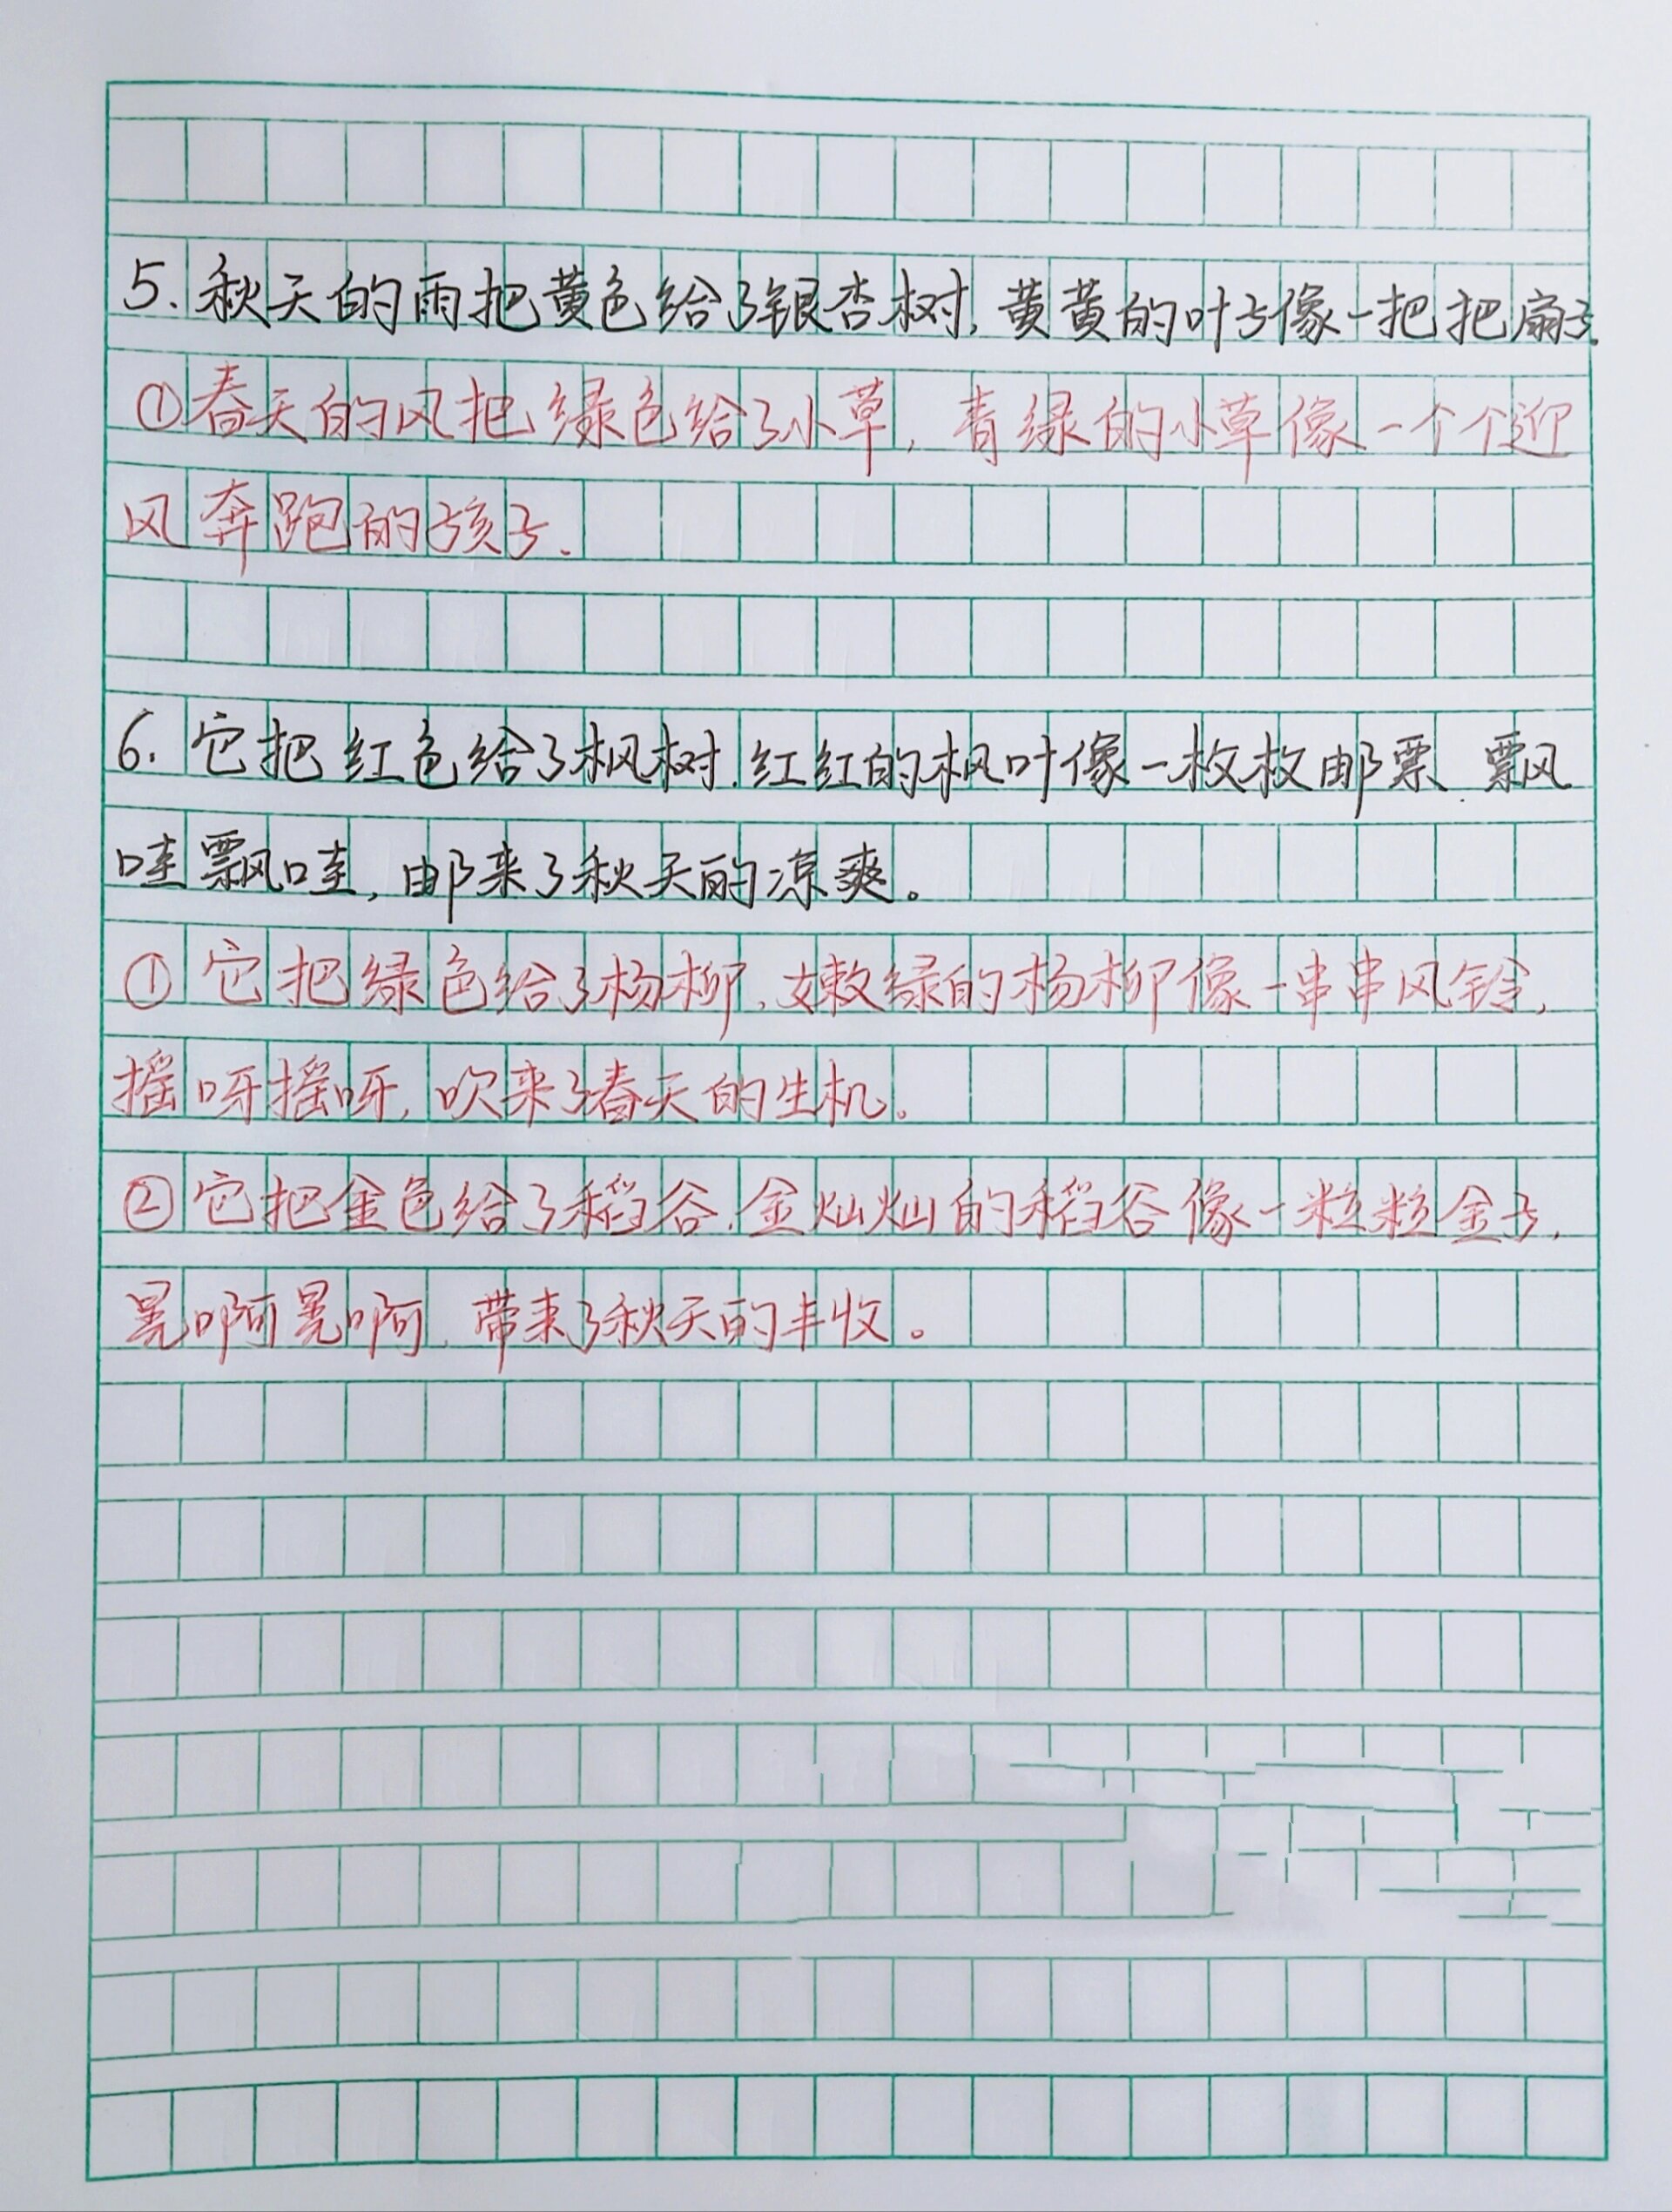 5.秋天的雨把黄色给了银杏树,黄黄的叶子像一把把扇子.
①春天的风把绿色给了小草,青绿的小草像一个个迎
风奔跑的孩子.
6.它把红色给了枫树.红红的枫叶像一枚枚邮票.飘风
哇飘哇,邮来了秋天的凉爽。
①它把绿色给了杨柳,嫩绿的杨柳像一串串风铃,
摇呀摇呀,吹来了春天的生机。
②它把金色给了稻谷.金灿灿的稻谷像一粒粒金子,
晃啊晃啊,带来了秋天的丰收。